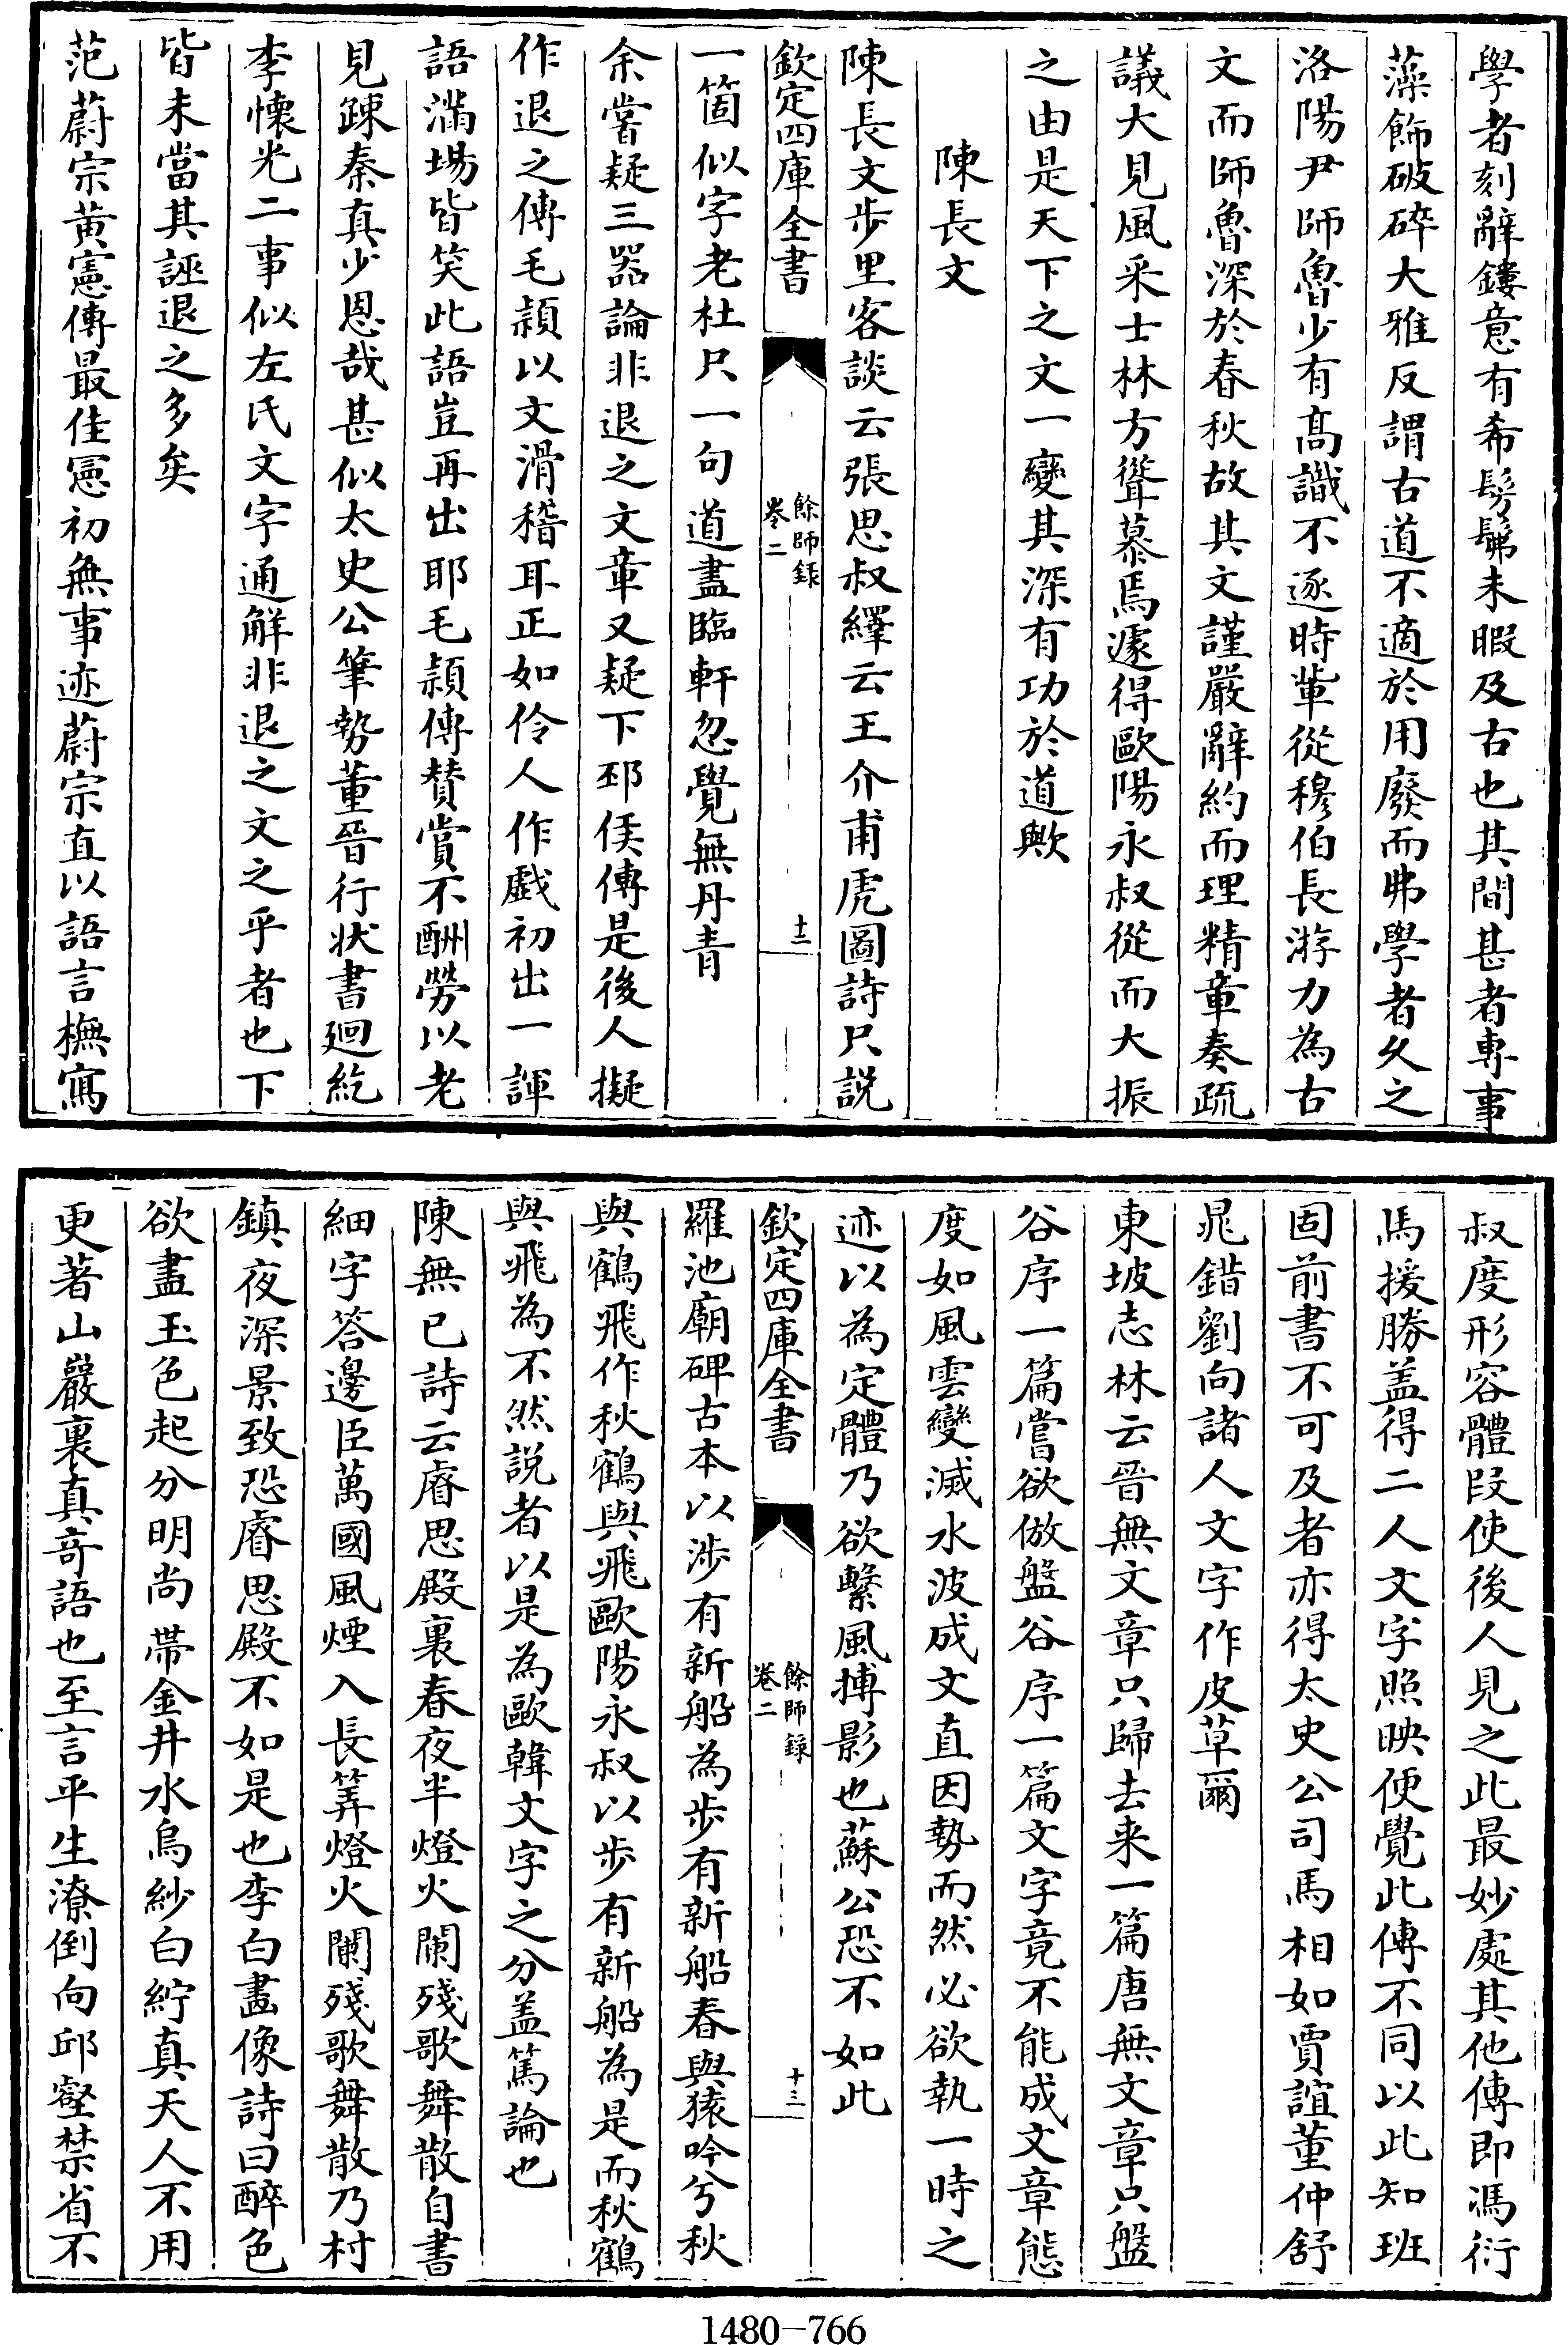 學者刻辭鏤意有希髣髴未暇及古也其間甚者專事
藻飾破碎大雅反謂古道不適於用廢而弗學者久之
洛陽尹師魯少有高識不逐時輩從穆伯長游力為古
文而師魯深於春秋故其文謹嚴辭約而理精章奏疏
議大見風采士林方聳慕焉遽得歐陽永叔從而大振
之由是天下之文一變其深有功於道歟
陳長文
陳長文步里客談云張思叔繹云王介甫虎圖詩只説
欽定四庫全書
餘師錄
卷二
十二
一箇似字老杜只一句道盡臨軒忽覺無丹青
余嘗疑三器論非退之文章又疑下邳侯傳是後人擬
作退之傳毛頴以文滑稽耳正如伶人作戲初出一諢
語滿場皆笑此語豈再出耶毛頴傳賛賞不酬勞以老
見疎秦真少恩哉甚似太史公筆勢董晉行状書廻紇
李懷光二事似左氏文字通解非退之文之乎者也下
皆未當其誣退之多矣
范蔚宗黄憲傳最佳憲初無事迹蔚宗直以語言橅寫
叔度形容體段使後人見之此最妙處其他傳即馮衍
馬援勝盖得二人文字照映便覺此傳不同以此知班
固前書不可及者亦得太史公司馬相如賈誼董仲舒
晁錯劉向諸人文字作皮草爾
東坡志林云晉無文章只歸去来一篇唐無文章只盤
谷序一篇嘗欲倣盤谷序一篇文字竟不能成文章態
度如風雲變滅水波成文直因勢而然必欲執一時之
迹以為定體乃欲繫風搏影也蘇公恐不如此
欽定四庫全書
餘師錄
卷二
十三
羅池廟碑古本以涉有新船為步有新船春與猿吟兮秋
與鶴飛作秋鶴與飛歐陽永叔以步有新船為是而秋鶴
與飛為不然説者以是為歐韓文字之分盖篤論也
陳無已詩云睿思殿裏春夜半燈火闌殘歌舞散自書
細字答邊臣萬國風煙入長筭燈火闌殘歌舞散乃村
鎮夜深景致恐睿思殿不如是也李白畫像詩曰醉色
欲盡玉色起分明尚帶金井水烏紗白紵真天人不用
更著山巖裏真奇語也至言平生潦倒向邱壑禁省不
1480-766